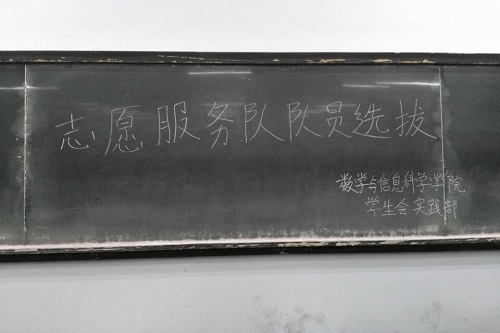 志愿服务队队员选拔
数学与信息科学学院
学生会实践部